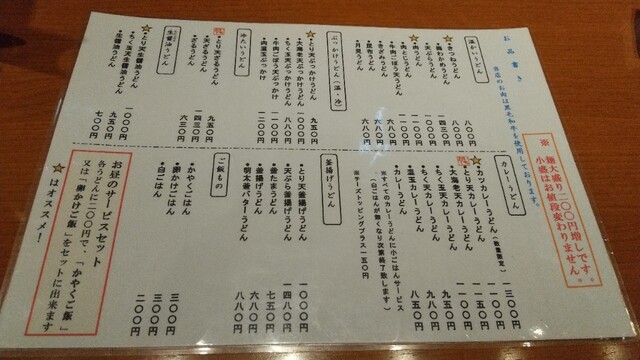 お品書き
当店のお肉は黒毛和牛を使用しております。
※ 麺大盛り二〇〇円増しです
小盛はお値段変わりません ※
温かいうどん
きつねうどん 八〇〇円
鶏わかめうどん
天ぷらうどん 一四三〇円
☆肉うどん
肉とじうどん
牛肉ごぼう天うどん
きざみうどん 六八〇円
昆布うどん 六八〇円
月見うどん 六八〇円
ぶっかけうどん(温・冷)
☆とり天ぶっかけうどん 九五〇円
大海老天ぶっかけうどん
ちく玉天ぶっかけうどん 八八〇円
牛肉ごぼう天ぶっかけ
肉温玉ぶっかけ 一二〇〇円
冷たいうどん
とり天ざるうどん 九五〇円
天ざるうどん 一四三〇円
ざるうどん 六三〇円
生醤油うどん
☆とり天生醤油うどん 一〇〇〇円
ちく玉天生醤油うどん 九五〇円
生醤油うどん 七〇〇円
カレーうどん
☆カツカレーうどん(数量限定) 一三〇〇円
とり天カレーうどん 一一五〇円
大海老天カレーうどん 一一〇〇円
ちく天カレーうどん 九五〇円
温玉カレーうどん 九五〇円
カレーうどん 八五〇円
※すべてのカレーうどんに小ごはんサービス
(白ごはんが無くなり次第終了致します)
※チーズトッピングプラス一五〇円
釜揚げうどん
☆とり天釜揚げうどん 一〇〇〇円
天ぷら釜揚げうどん 一四八〇円
釜揚げうどん 七五〇円
釜たまうどん 六八〇円
明太釜バターうどん 八八〇円
ご飯もの
かやくごはん 三〇〇円
卵かけごはん 三〇〇円
白ごはん 二〇〇円
お昼のサービスセット
各うどんに二〇〇円で、「かやくご飯」
又は、「卵かけご飯」をセットに出来ます
☆はオススメ!